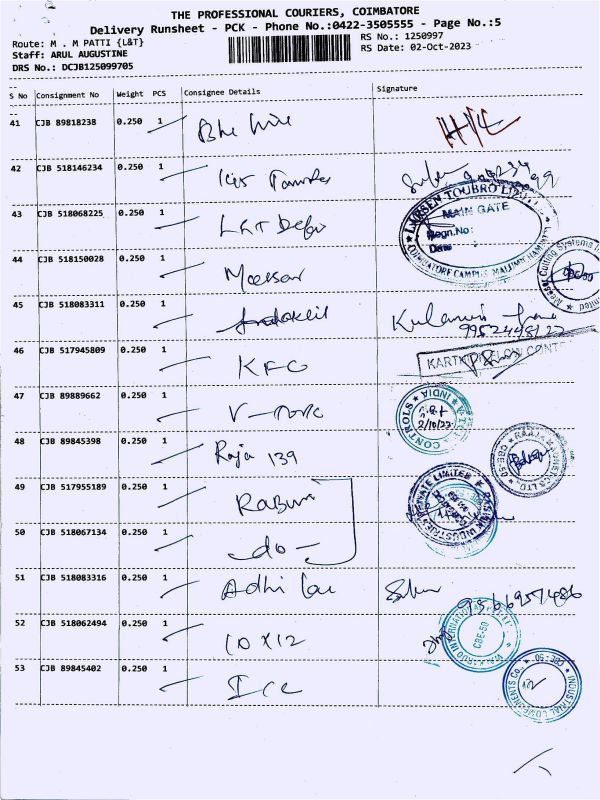 THE PROFESSIONAL COURIERS, COIMBATORE
Delivery Runsheet - PCK - Phone No.:0422-3505555 - Page No.:5
Route: M . M PATTI {L&T}
RS No.: 1250997
Staff: ARUL AUGUSTINE
RS Date: 02-Oct-2023
DRS No.: DCJB125099705
S No Consignment No Weight PCS Consignee Details Signature
41 CJB 89818238 0.250 1
42 CJB 518146234 0.250 1
LARSEN TOUBRO
MAIN GATE
Regn.No:
Date
COIMBATORE CAMPUS
43 CJB 518068225 0.250 1 L&T Defo
44 CJB 518150028 0.250 1
45 CJB 518083311 0.250 1
9952448122
46 CJB 517945809 0.250 1 KFC
47 CJB 89889662 0.250 1
CONTROLS INDIA
2/10/23
48 CJB 89845398 0.250 1 Raja 139
49 CJB 517955189 0.250 1
PRIVATE LIMITED
INDUSTRIES
50 CJB 518067134 0.250 1 -do-
51 CJB 518083316 0.250 1
9566957486
52 CJB 518062494 0.250 1 10x12
CBE-50
53 CJB 89845402 0.250 1 ICC
INDUSTRIAL COMPONENTS Co., CBE-50